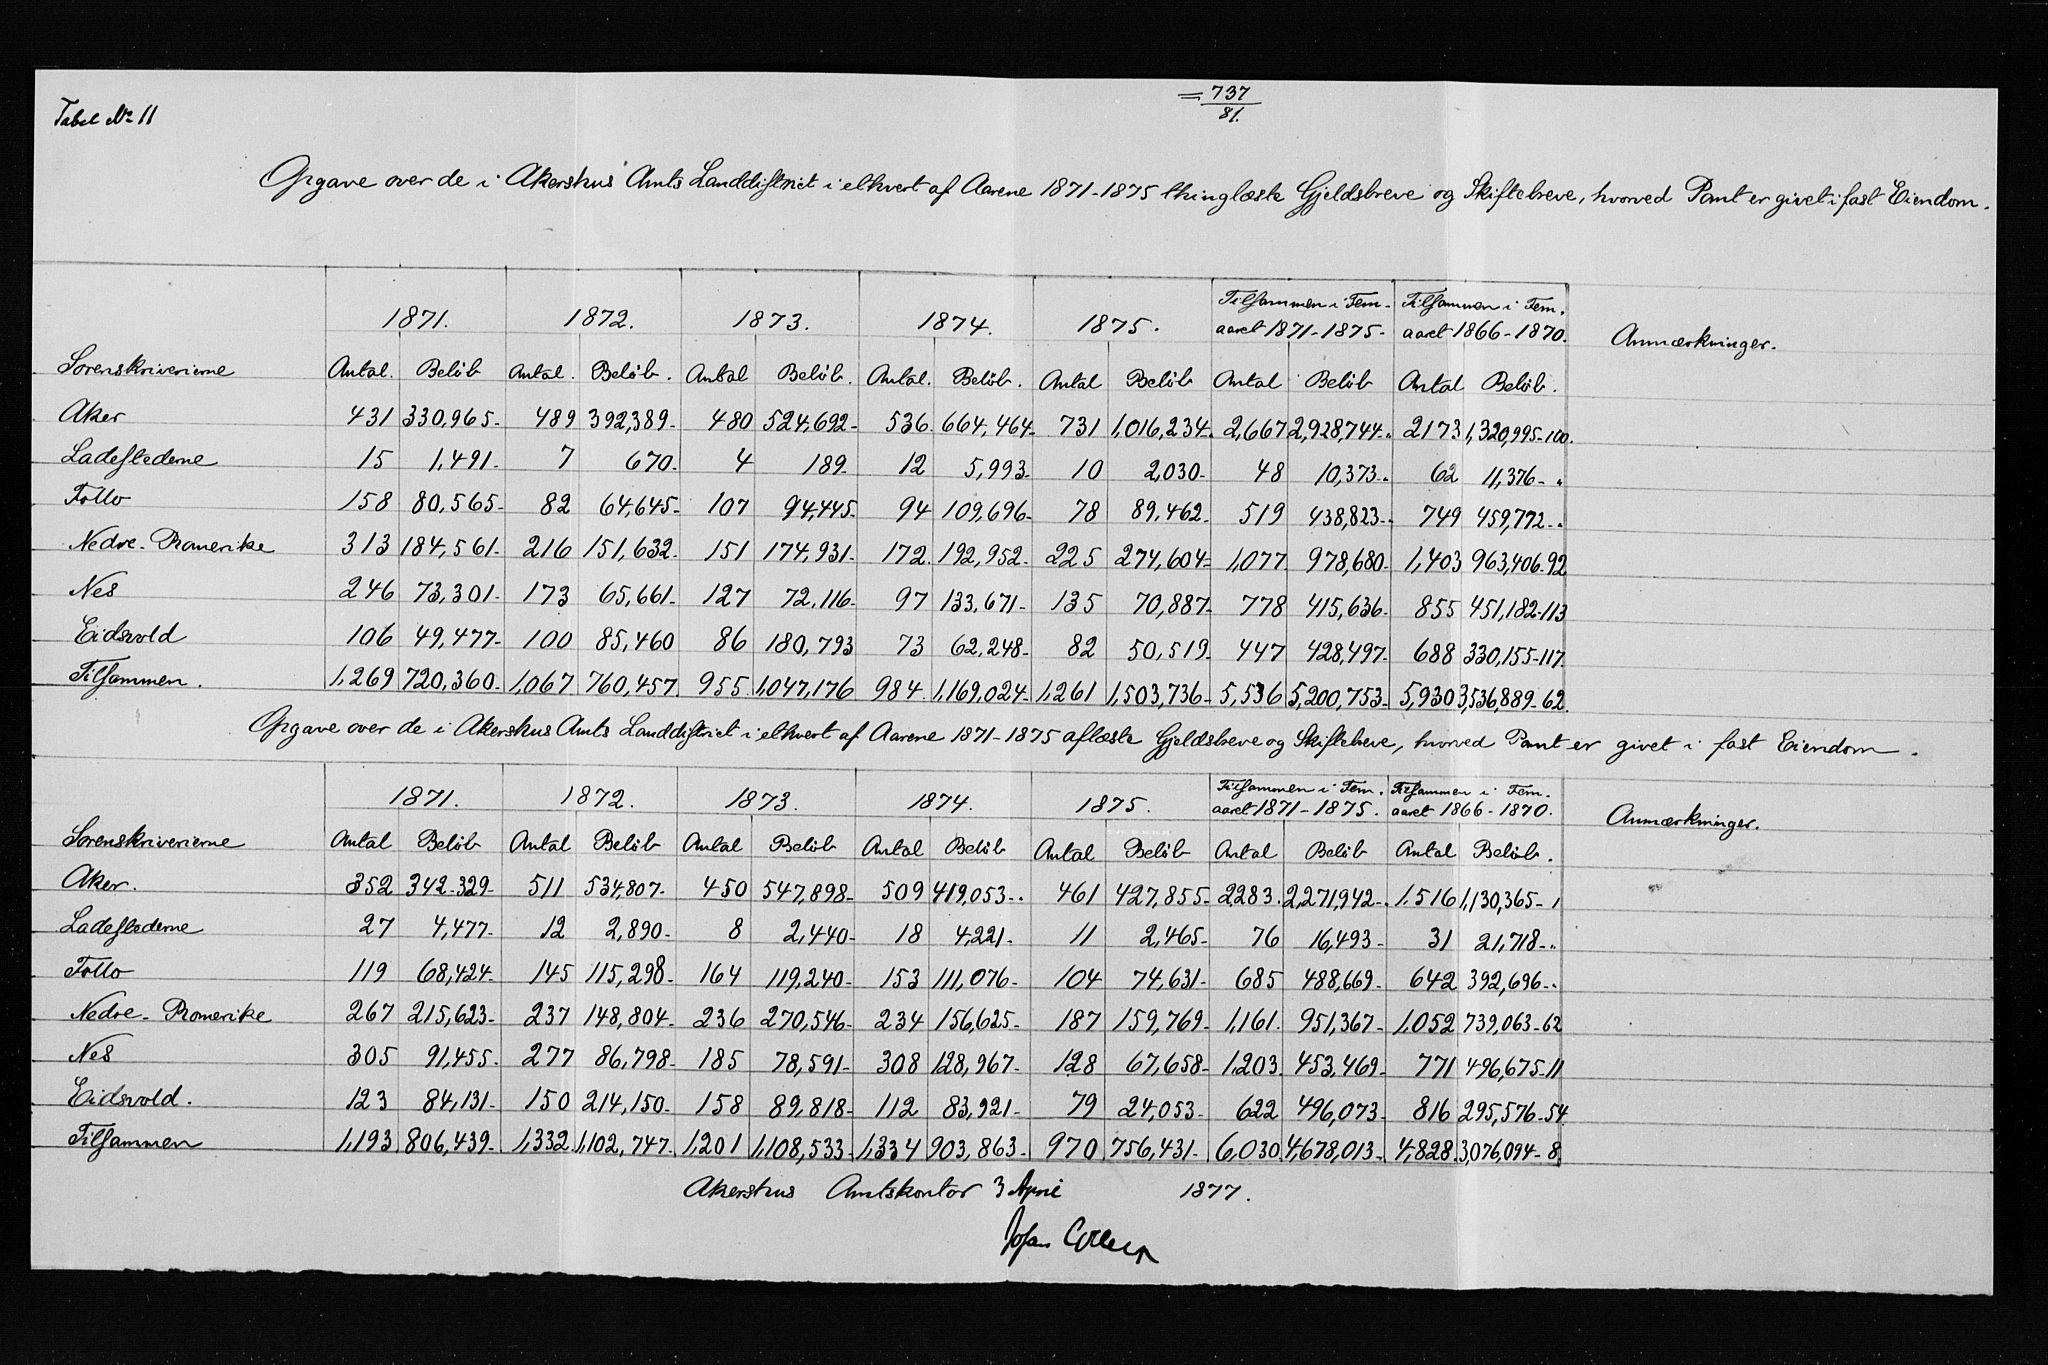 Tabel No 11
= 737
81.
Opgave over de i Akershus Amts Landdistrict i ethvert af Aarene 1871-1875 thinglæste Gjeldsbreve og Skiftebreve, hvorved Pant er givet i fast Eiendom.
1871. 1872. 1873. 1874. 1875. Tilsammen i Fem- Tilsammen i Fem.
aaret 1871-1875- aaret 1866-1870. Anmærkninger.
Sorenskriverierne Antal. Beløb Antal. Beløb. Antal Beløb. Antal. Beløb. Antal Beløb Antal Beløb Antal Beløb.
Aker 431 330,965- 489 392,389- 480 524,692- 536 664,464- 731 1,016,234- 2,667 2,928,744-" 2173 1,320,995-100.
Ladestederne 15 1,491- 7 670- 4 189- 12 5,993- 10 2,030- 48 10,373-" 62 11,376-"
Follo 158 80,565- 82 64,645- 107 94,445- 94 109,696- 78 89,462- 519 438,823-" 749 459,772-"
Nedre-Romerike 313 184,561- 216 151,632- 151 174,931- 172. 192,952- 225 274,604- 1,077 978,680- 1,403 963,406-92
Nes 246 73,301- 173 65,661- 127 72,116- 97 133,671- 135 70,887- 778 415,636- 855 451,182-113
Eidsvold 106 49,477- 100 85,460 86 180,793 73 62,248- 82 50,519- 447 428,497- 688 330,155-117
Tilsammen. 1,269 720,360- 1,067 760,457 955 1,047,176 984 1,169,024- 1,261 1,503,736- 5,536 5,200,753- 5,930 3,536,889-62.
Opgave over de i Akershus Amts Landdistrict i ethvert af Aarene 1871-1875 aflæste Gjeldsbreve og Skiftebreve, hvorved Pant er givet i fast Eiendom.
1871. 1872. 1873. 1874. 1875. Tilsammen i Fem. Tilsammen i Fem-
aaret 1871-1875. aaret 1866-1870. Anmærkninger.
Sorenskriverierne Antal Beløb Antal Beløb Antal Beløb Antal Beløb Antal Beløb Antal Beløb Antal Beløb.
Aker. 352 342-329- 511 534,807- 450 547,898- 509 419,053-. 461 427,855- 2283. 2,271,942-. 1.516 1,130,365-1
Ladestederne 27 4,477- 12 2,890- 8 2,440- 18 4,221- 11 2,465- 76 16,493- 31 21,718-"
Follo 119 68,424- 145 115,298- 164 119,240- 153 111,076- 104 74,631- 685 488,669- 642 392,696-"
Nedre-Romerike 267 215,623- 237 148,804- 236 270,546- 234 156,625- 187 159,769- 1,161. 951,367- 1,052 739,063-62
Nes 305 91,455- 277 86,798- 185 78,591- 308 128,967- 128 67,658- 1,203. 453,469- 771 496,675-11
Eidsvold. 123 84,131- 150 214,150- 158 89,818- 112 83,921- 79 24,053- 622 496,073- 816 295,576-54
Tilsammen 1,193 806,439- 1,332 1,102,747- 1,201 1,108,533- 1,334 903,863- 970 756,431- 6,030 4,678,013- 4,828 3,076,094-8
Akershus Amtskontor 3 April 1877.
Johan Collett